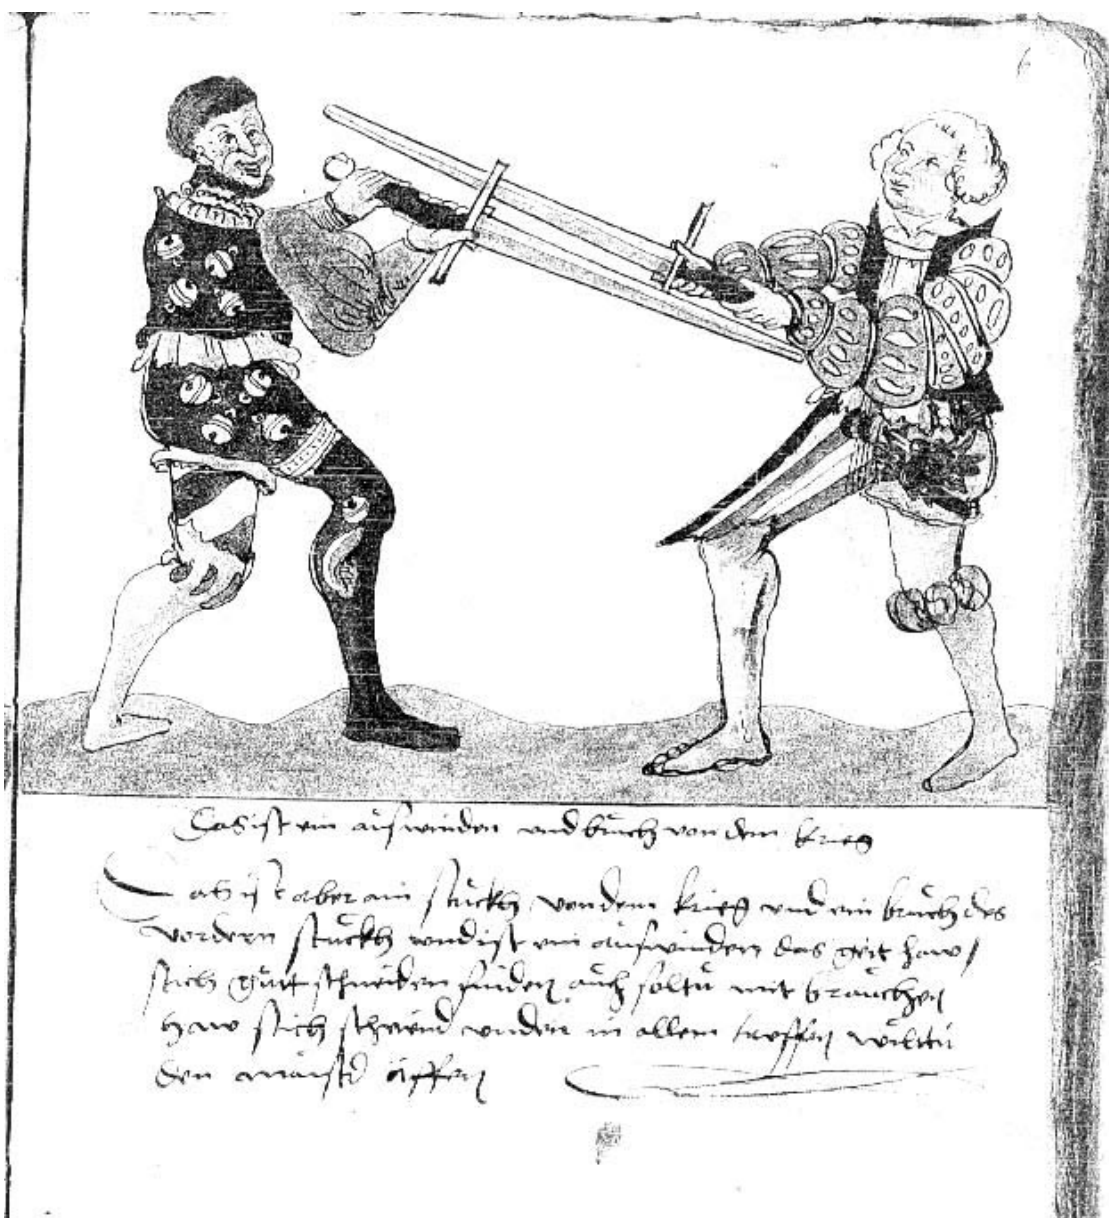 6
Das ist ein aůfwinden und brůch von dem krieg
Das ist aber ain stůckh von dem krieg und ein brůch des
vordern stůckh und ist ein aůfwinden das gert haw /
stich gůtt schneiden finden aůch soltů mit braůchen
haw stich schnid winden in allem treffen wiltů
den maister äffen